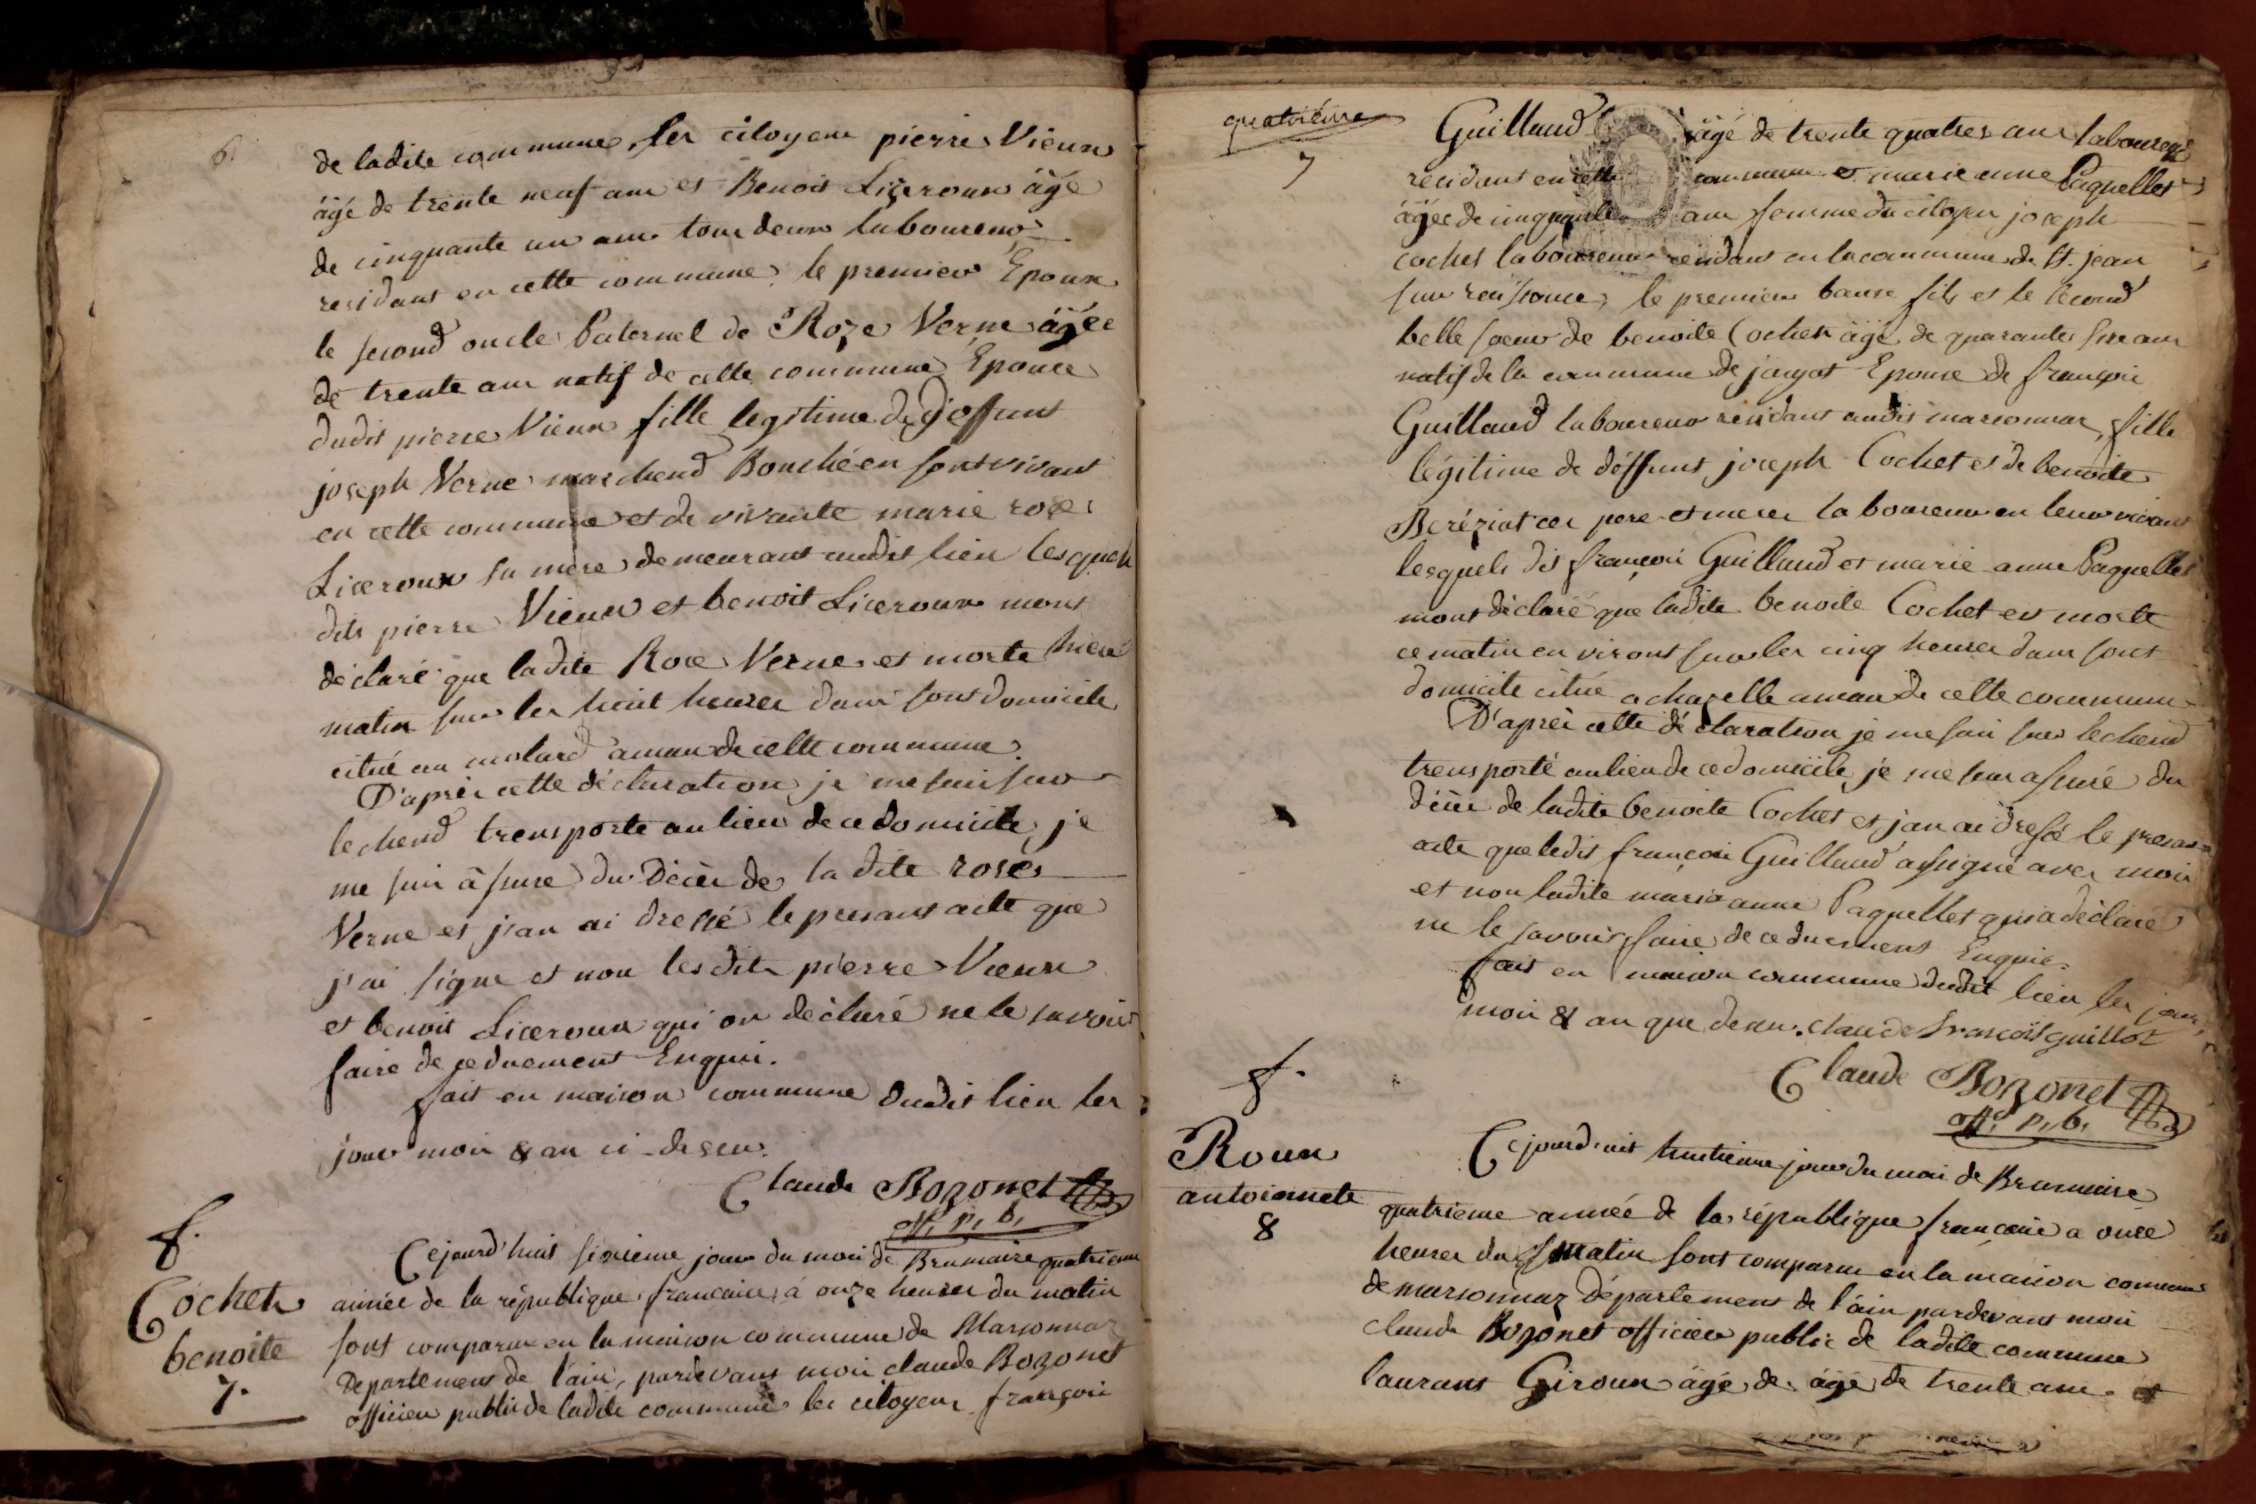 6.
de ladite commune, les citoyens pierre Vieux
âgé de trente neuf ans et Benoit Liceroux âgé
de cinquante un ans tous deux laboureur
residant en cette commune, le premier Epoux
le second oncle Paternel de Roze Verne âgée
de trente ans natif de cette commune Epouse
dudit pierre Vieux fille legitime de deffunt
joseph Verne marchend Bouché en sont vivant
en cette commune et de vivante marie rose
Liceroux sa mere demeurant audit lien lesquels
dits pierre Vieux et benoit Liceroux mont
déclaré que ladite Rose Verne et morte hier
matin sur les huit heures dans sont domicile
citué au molard aman de cette commune.
D'après cette déclaration je me suis sur
lechend transporte au lieu de ce domicile, je
me suis âsure du Décès de ladite roses
Verne et j'an ai dressé le presant acte que
j'ai signe et non lesdits pierre Vieux
et benoit Liceroux qui on déclaré ne le savoir
faire de ce duement Enquis.
fait en maison commune dudit lieu les
jour mois & an ci-desus.
Claude Bozonet
off. p. b.
f.
Cochet
benoite
7.
Cejourd'huit sixieme jour du mois de Brumaire quatrieme
année de la république francaise, à onze heures du matin
sont comparu en la maison commune de Marsonnaz
Departement de l'ain, pardevant moi claude Bozonet
officier public de ladite commune les citoyens françois
quatriéme
7
Guillaud âgé de trente quatres ans laboureur
residant en cette commune et marie anne Paquellet
âgée de cinquante ans femme du citoyen joseph
cochet laboureur residant en la commune de St. jean
sur reissouce, le premier baux fils et le second
belle soeur de benoite Cochet âgé de quarante six ans
natif de la commune de jayat Epouse de françois
Guillaud laboureur residant audit marsonnaz, fille
légitime de déffunt joseph Cochet et de benoite
Béréziat ces pere et mere laboureur en leur vivant
lesquels dit françois Guillaud et marie anne Paquellet
mont déclaré que ladite benoite Cochet est morte
ce matin en viront sur les cinq heures dans sont
domicile citué a chazelle aman de cette commune
D'après cette déclaration je me suis sur lechend
transporté au lieu de ce domicile je me suis assuré du
décés de ladite benoite Cochet et j'an ai dressé le presant
acte que ledit françois Guillaud a signé avec moi
et non ladite marie anne Paquellet qui a déclaré
ne le savoir faire de ce duement Enquis.
fait en maison commune dudit lieu les jour,
mois & an que desus. claude françois guillot
Claude Bozonet
off. p. b.
f.
Roux
antoinnete
8
Cejourd'uit huitieme jour du mois de Brumaire
quatrieme année de la république francaise a onze
heures du matin sont comparu en la maison commune
de marsonnaz Département de l'ain pardevant moi
claude Bozonet officier public de ladite commune
laurant Giroux âgé de âgé de trente ans et